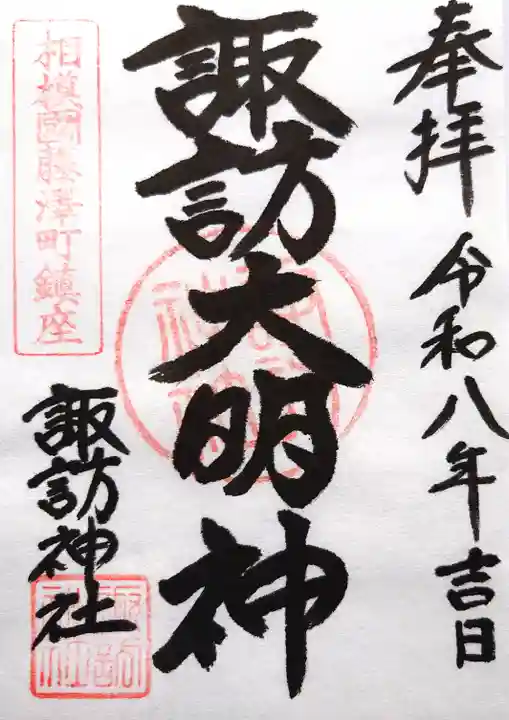 奉拝 令和八年吉日
諏訪大明神
相模國藤澤町鎮座
諏訪神社